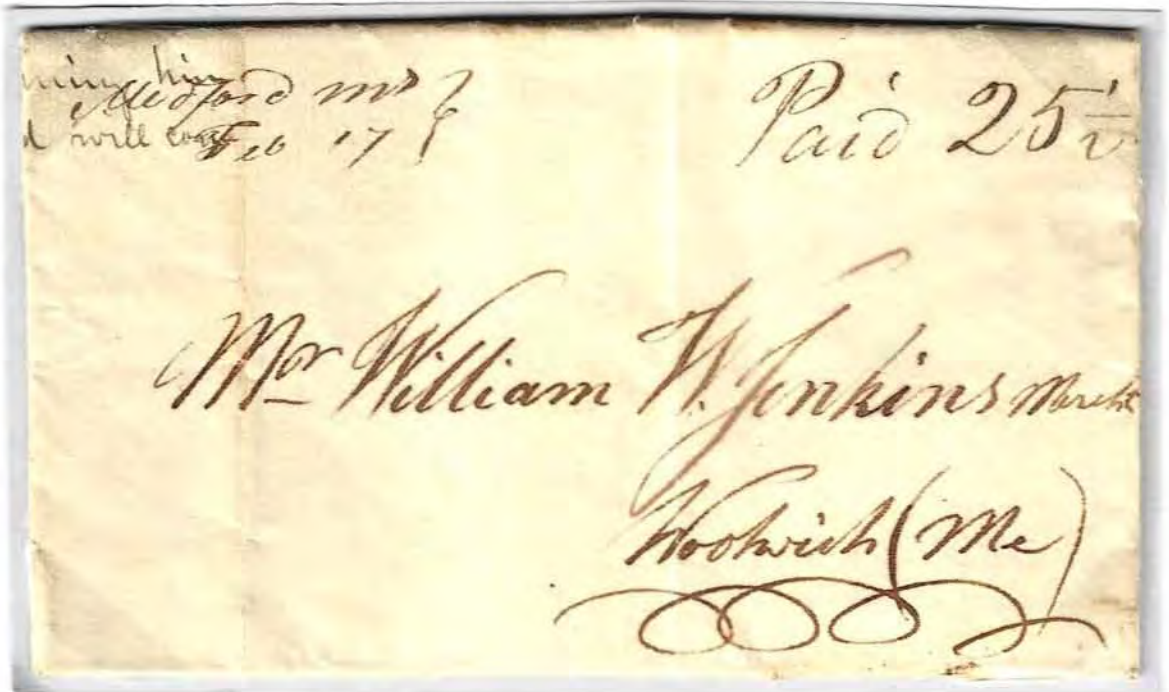 Medford Ms }
Feb 17
Paid 25 1/2
Mr William W. Jenkins Mercht
Woolwich (Me)